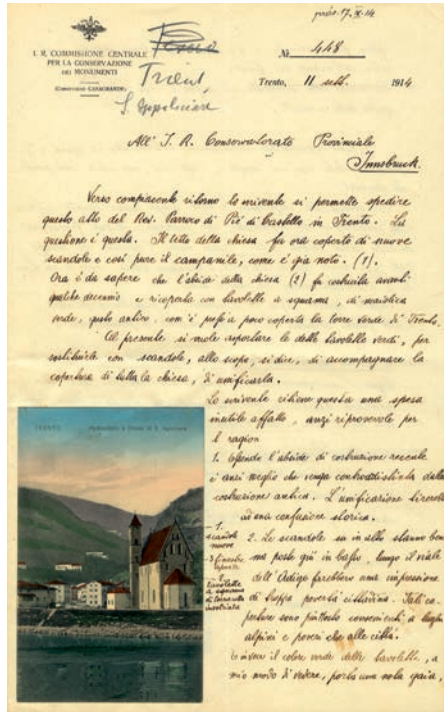 präs. 17. IX. 14
I. R. COMMISSIONE CENTRALE
PER LA CONSERVAZIONE
DEI MONUMENTI
(Conservatore CASAGRANDE)
Trient
S. Apollinare
№ 448
Trento, 11 sett. 1914
All' I. R. Conservatorato Provinciale
Innsbruck.
Verso compiacente ritorno lo scrivente si permette spedire
questo atto del Rev. Parroco di Piè di Castello in Trento. La
questione è questa. Il tetto della chiesa fu ora coperto di nuove
scandole e così pure il campanile, come è già noto. (1).
Ora è da sapere che l'abside della chiesa (2) fu costruita avanti
qualche decennio e ricoperta con tavolette a squama, di maiolica
verde, gusto antico, com'è presso a poco coperta la torre verde di Trento.
Al presente si vuole asportare le dette tavolette verdi, per
sostituirle con scandole, allo scopo, si dice, di accompagnare la
copertura di tutta la chiesa, di unificarla.
Lo scrivente ritiene questa una spesa
inutile affatto, anzi riprovevole per
ragion
1. Essendo l'abside di costruzione recente
è anzi meglio che venga contraddistinta dalla
costruzione antica. L'unificazione
ad una confusione storica.
2. Le scandole su in alto stanno ben
ma poste giù in basso, lungo il viale
dell'Adige farebbero una impressione
di troppa povertà cittadina. Tali co-
perture sono piuttosto convenienti a luoghi
alpini e poveri che alle città.
invece il colore verde delle tavolette, a
mio modo di vedere, porta una nota gaia,
TRENTO
1.
scandole
nuove
finestre
2.
tavolette
a squama
di terracotta